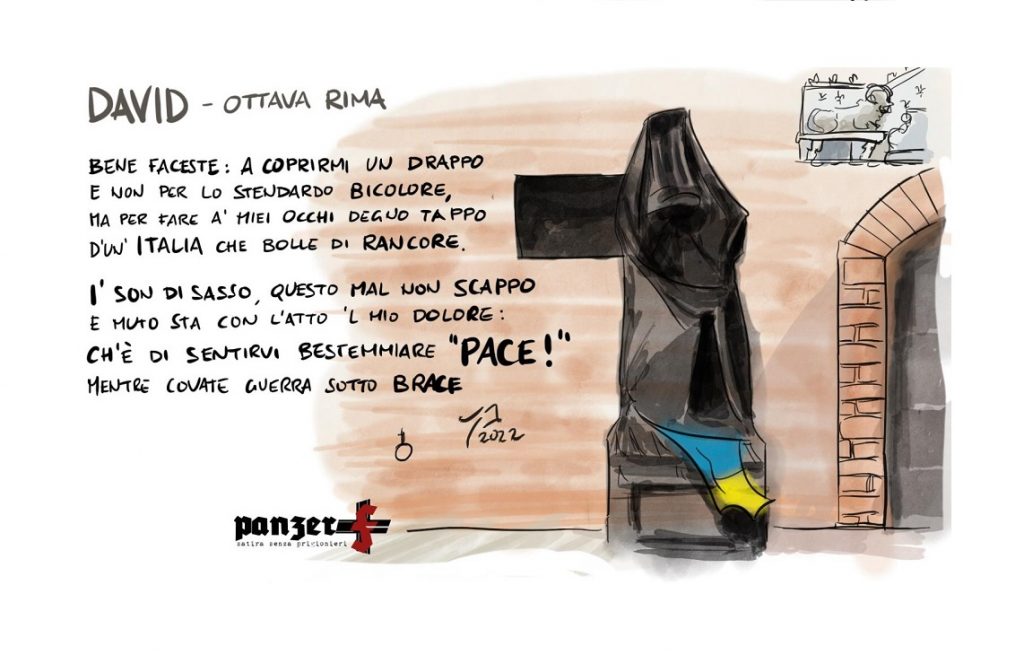 DAVID - OTTAVA RIMA
BENE FACESTE: A COPRIRMI UN DRAPPO
E NON PER LO STENDARDO BICOLORE,
MA PER FARE A' MIEI OCCHI DEGNO TAPPO
D'UN' ITALIA CHE BOLLE DI RANCORE.
I' SON DI SASSO, QUESTO MAL NON SCAPPO
E MUTO STA CON L'ATTO 'L MIO DOLORE:
CH'È DI SENTIRVI BESTEMMIARE "PACE!"
MENTRE COVATE GUERRA SOTTO BRACE
2022
panzer
satira senza prigionieri